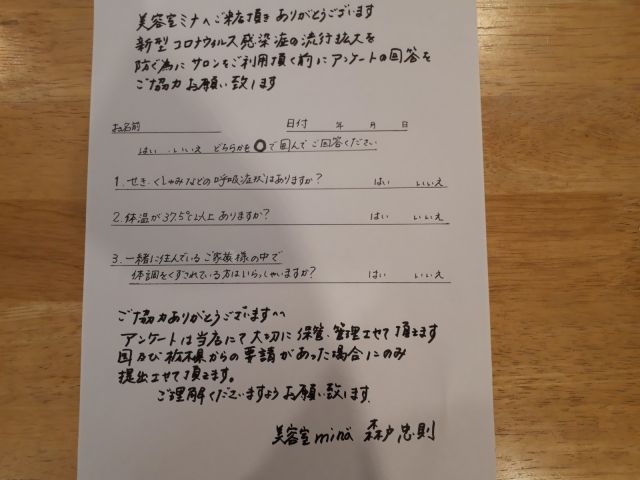 美容室ミナへご来店頂き ありがとうございます
新型コロナウィルス感染症の流行拡大を
防ぐ為に サロンをご利用頂く前に アンケートの回答を
ご協力 お願い致します
お名前 日付 年 月 日
はい . いいえ どちらかを〇で囲んで ご回答ください
1. せき、くしゃみなどの呼吸症状はありますか? はい いいえ
2. 体温が37.5℃以上ありますか? はい いいえ
3. 一緒に住んでいるご家族様の中で
体調をくずされている方はいらっしゃいますか? はい いいえ
ご協力ありがとうございます^^
アンケートは当店にて大切に保管、管理させて頂きます
国及び栃木県からの要請があった場合にのみ
提出させて頂きます。
ご理解くださいますようお願い致します
美容室mina 森戸忠則